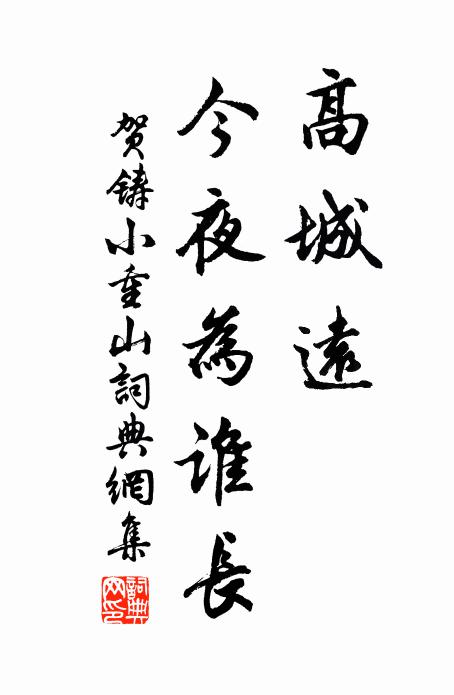 高城遠
今夜為誰長
賀鑄小重山詞典網集
詞典网印